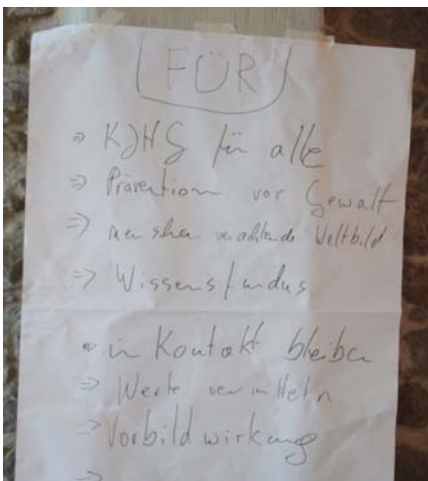 FÜR
⇒ KJHG für alle
⇒ Prävention vor Gewalt
⇒ menschenverachtende Weltbild
⇒ Wissensfundus
• in Kontakt bleiben
⇒ Werte vermitteln
⇒ Vorbildwirkung
⇒